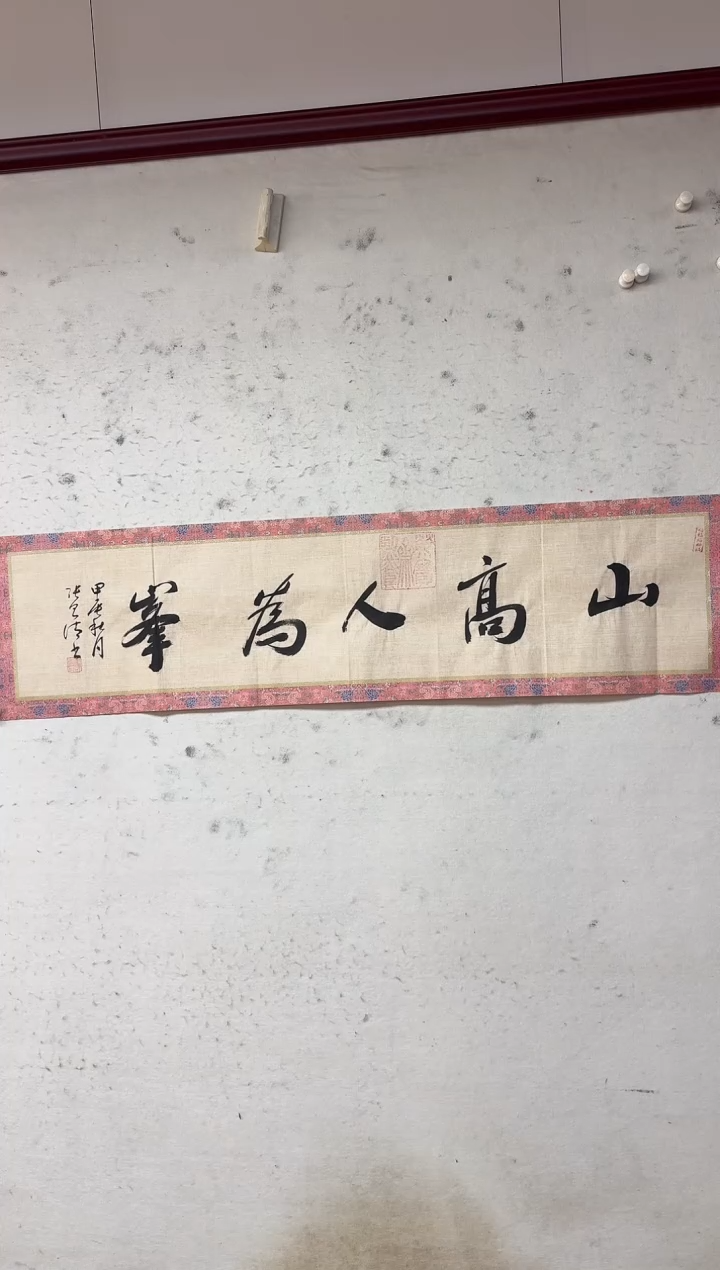 山高人為峯
甲辰秋月